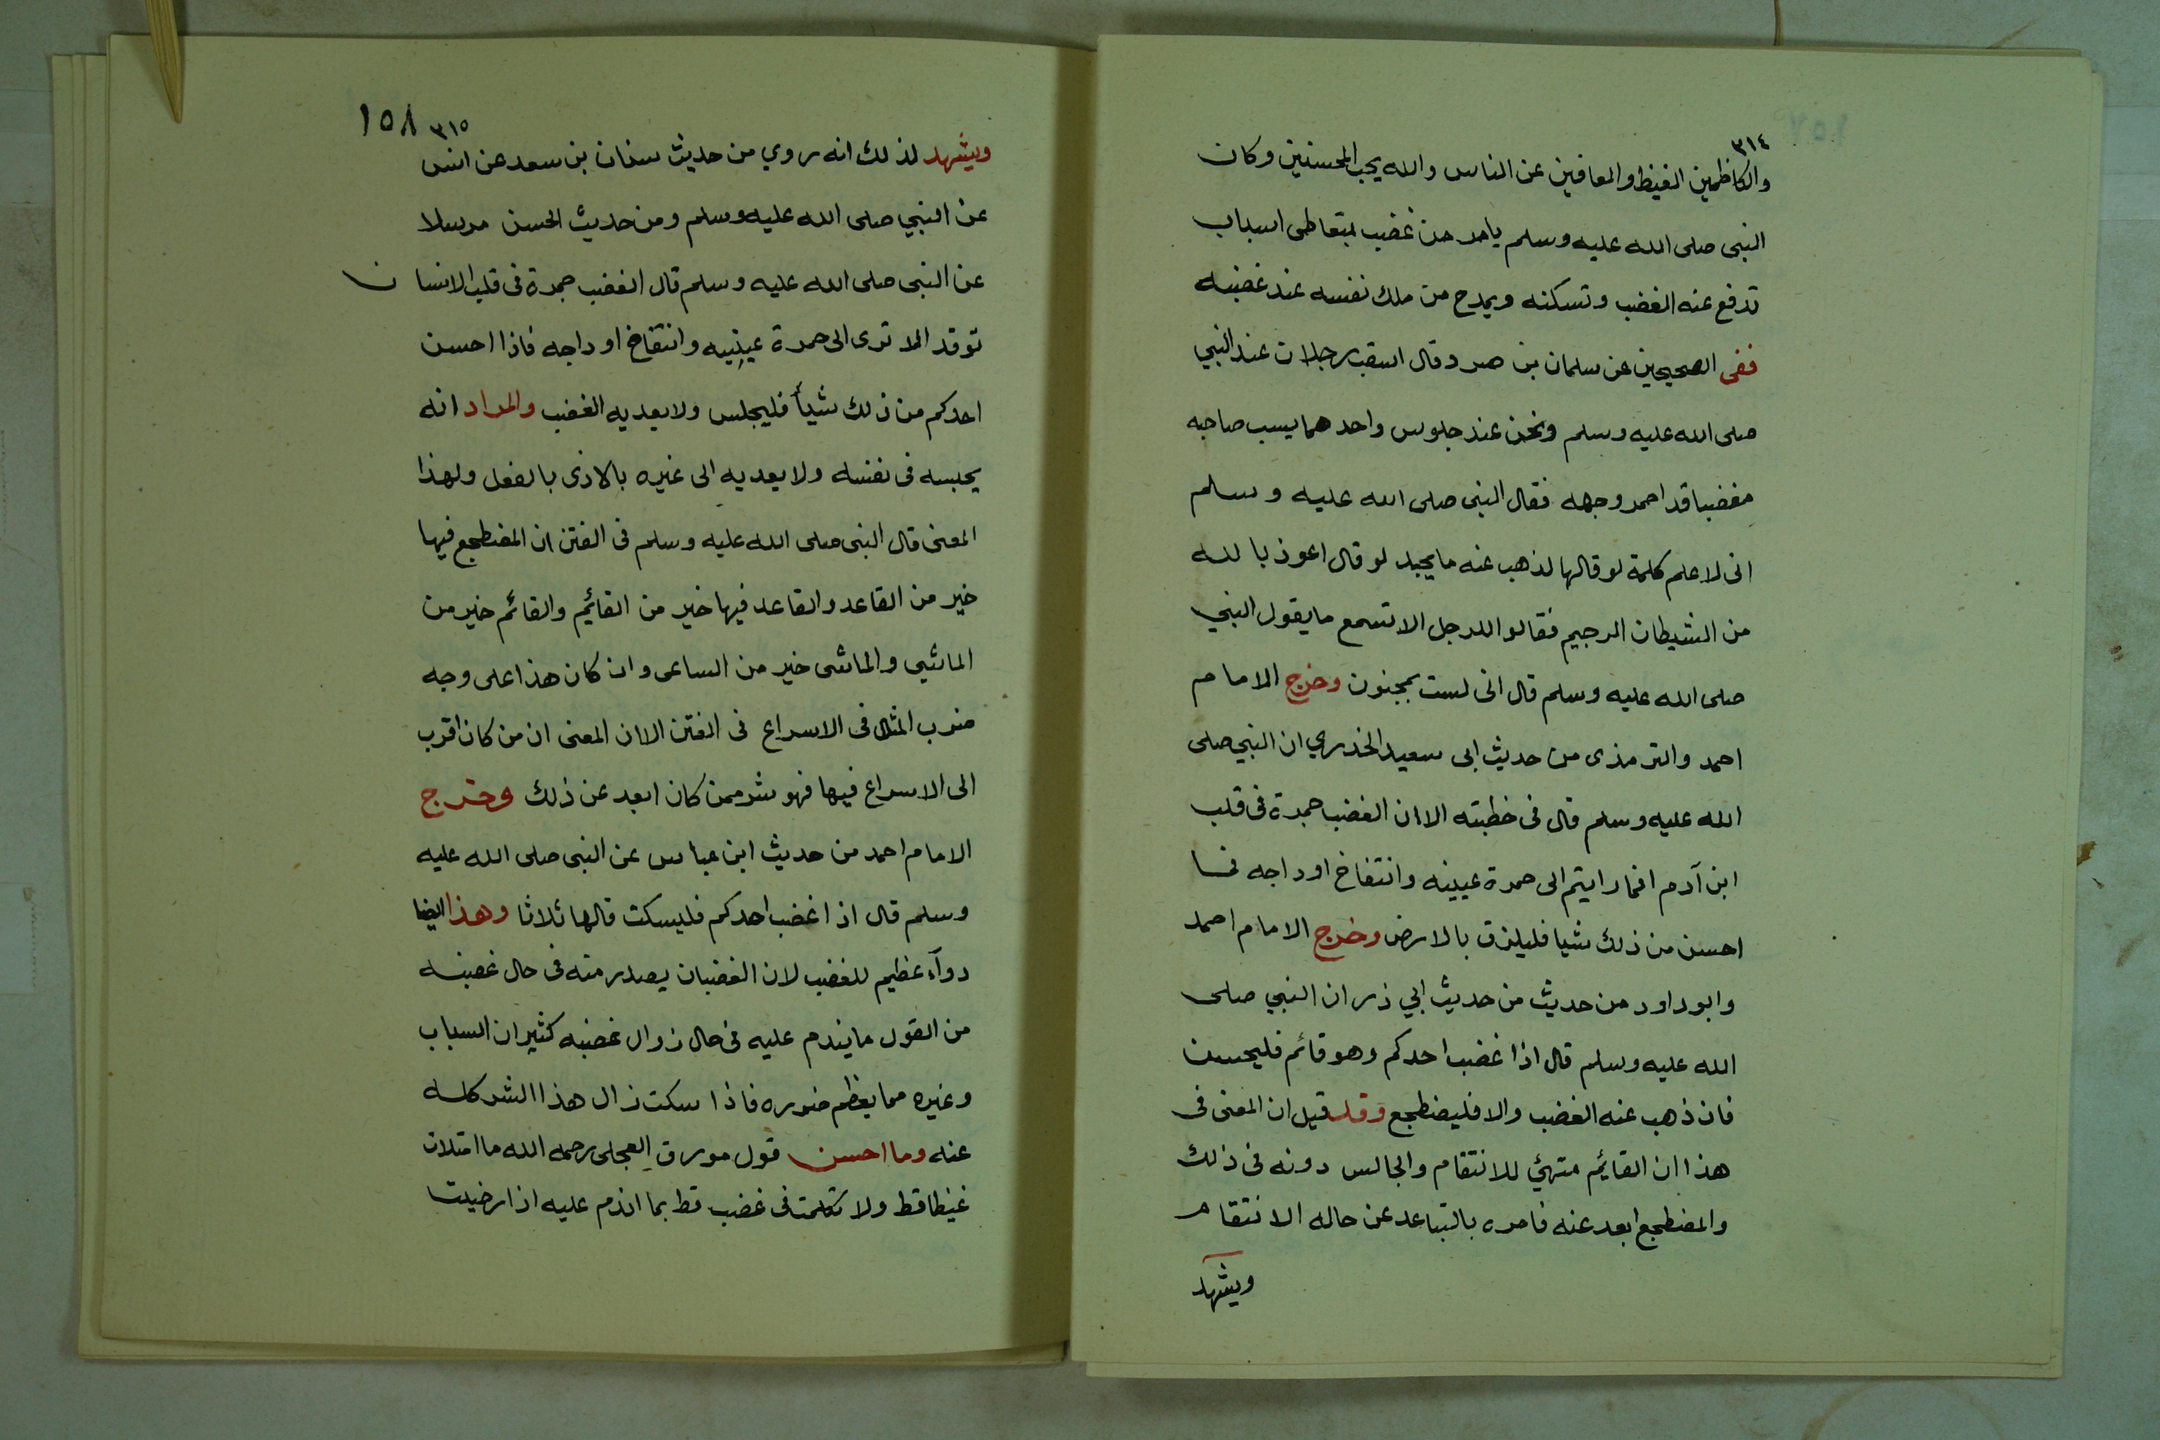 ٣١٤
والكاظمين الغيظ والعافين عن الناس والله يحب المحسنين وكان
النبى صلى الله عليه وسلم يامر من غضب بتعاطى اسباب
تدفع عنه الغضب وتسكنه ويمدح من ملك نفسه عند غضبه
ففى الصحيحين عن سلمان بن صرد قال استب رجلان عند النبي
صلى الله عليه وسلم ونحن عند جلوس واحدهما يسب صاحبه
مغضبا قد احمر وجهه فقال النبى صلى الله عليه وسلم
انى لاعلم كلمة لو قالها لذهب عنه ما يجد لو قال اعوذ بالله
من الشيطان الرجيم فقالوا للرجل الا تسمع ما يقول النبي
صلى الله عليه وسلم قال انى لست بمجنون وخرج الامام
احمد والترمذى من حديث ابى سعيد الخدري ان النبي صلى
الله عليه وسلم قال فى خطبته الا ان الغضب جمرة فى قلب
ابن آدم افما رايتم الى حمرة عينيه وانتفاخ اوداجه فما
احسن من ذلك شيا فليلزق بالارض وخرج الامام احمد
وابو داود من حديث من حديث ابي ذر ان النبي صلى
الله عليه وسلم قال اذا غضب احدكم وهو قائم فليجلس
فان ذهب عنه الغضب والا فليضطجع وقد قيل ان المعنى فى
هذا ان القايم متهئ للانتقام والجالس دونه فى ذلك
والمضطجع ابعد عنه فامره بالتباعد عن حاله الانتقام
ويشهد
١٥٨ ٣١٥
ويشهد لذلك انه روي من حديث سنان بن سعد عن انس
عن النبي صلى الله عليه وسلم ومن حديث الحسن مرسلا
عن النبى صلى الله عليه وسلم قال الغضب جمرة فى قلب الانسان
توقد الا ترى الى حمرة عينيه وانتفاخ اوداجه فاذا احسن
احدكم من ذلك شيأ فليجلس ولا يعديه الغضب والمراد انه
يحبسه فى نفسه ولا يعديه الى غيره بالاذى بالفعل ولهذا
المعنى قال النبى صلى الله عليه وسلم فى الفتن ان المضطجع فيها
خير من القاعد والقاعد فيها خير من القائيم والقائم خير من
الماشي والماشى خير من الساعى وان كان هذا على وجه
ضرب المثال فى الاسراع فى الفتن الا ان المعنى ان من كان اقرب
الى الاسراع فيها فهو شر ممن كان ابعد عن ذلك وخرج
الامام احمد من حديث ابن عباس عن النبى صلى الله عليه
وسلم قال اذا غضب احدكم فليسكت قالها ثلاثا وهذا ايضا
دوآء عظيم للغضب لان الغضبان يصدر منه فى حال غضبه
من القول ما يندم عليه فى حال زوال غضبه كثير ان السباب
وغيره مما يعظم ضرره فاذا سكت زال هذا الشر كله
عنه وما احسن قول مورق العجلى رحمه الله ما امتلات
غيظا قط ولا تكلمت فى غضب قط بما اندم عليه اذا رضيت